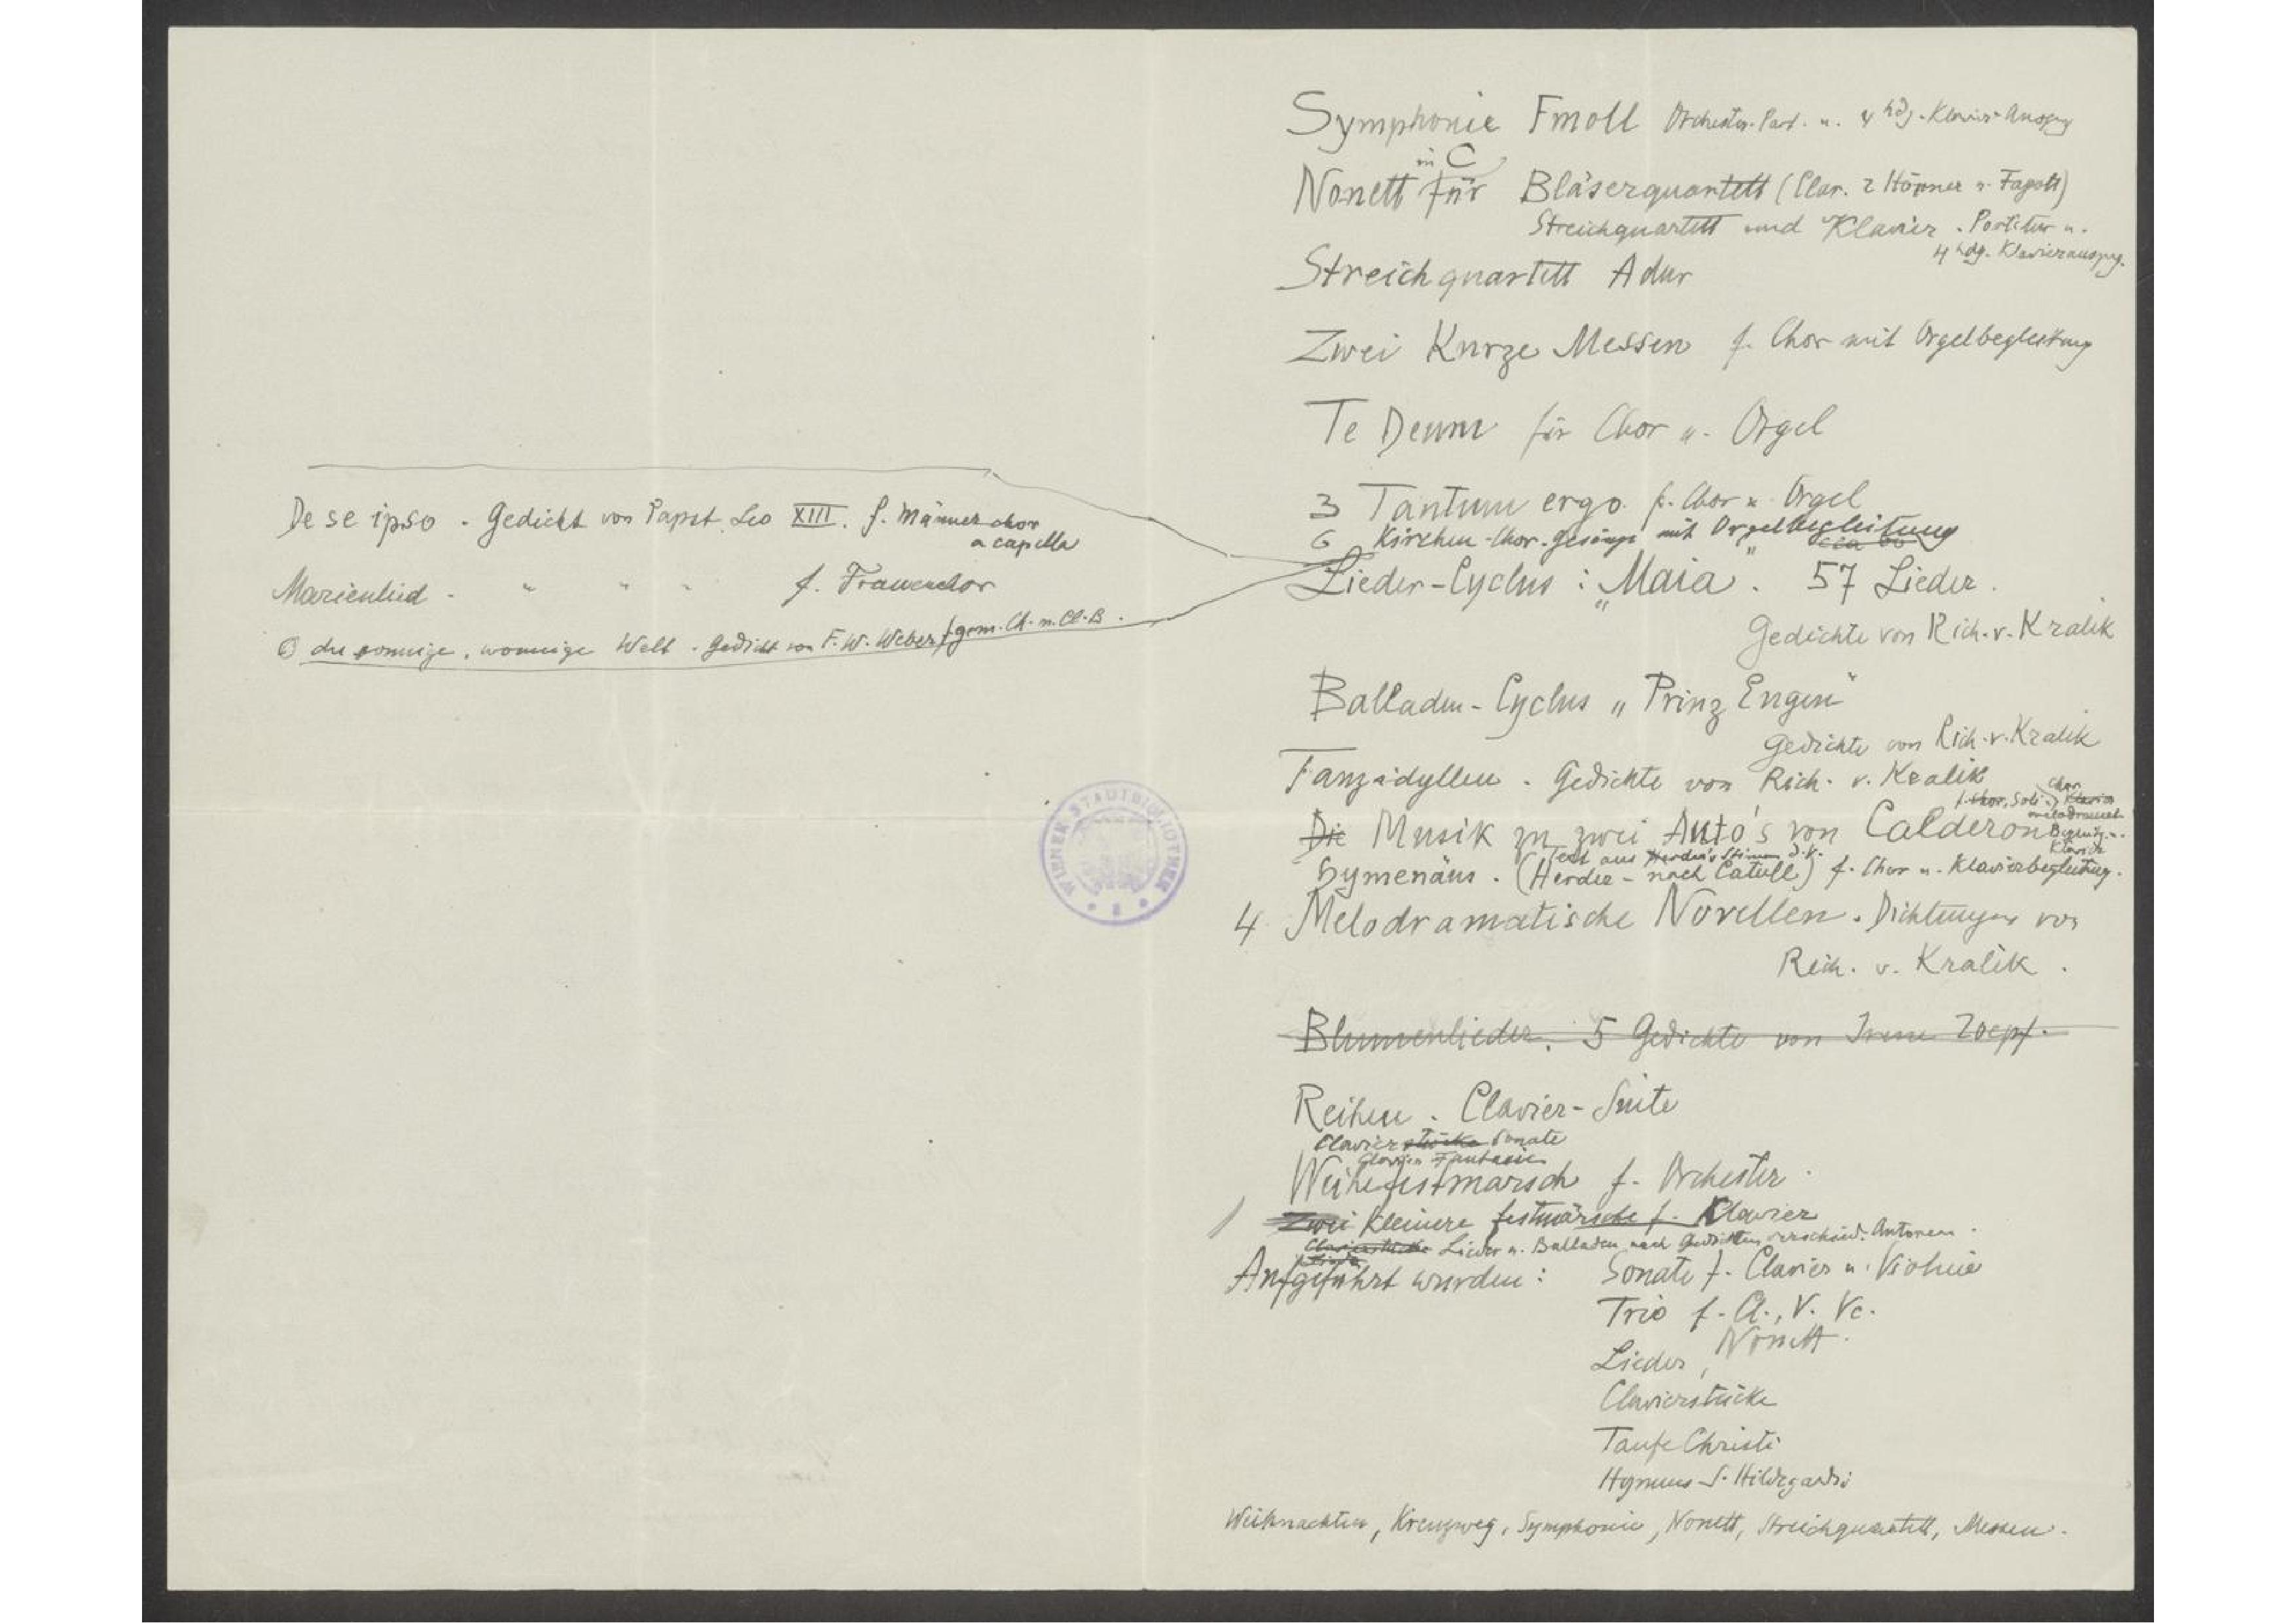 Symphonie Fmoll Orchester-Part. u. 4 hdg. Klavier-Auszg
Nonett in C für Bläserquartett (Clar. 2 Hörner u. Fagott)
Streichquartett und Klavier. Partitur u.
4 hdg. Klavierauszg.
Streichquartett A dur
Zwei Kurze Messen f. Chor mit Orgelbegleitung
Te Deum für Chor u. Orgel
3 Tantum ergo f. Chor u. Orgel
6 Kirchen-Chor-gesänge mit Orgelbegleitung
Lieder-Cyclus: „Maria". 57 Lieder.
Gedichte von Rich. v. Kralik
Balladen-Cyclus „Prinz Eugen"
Gedichte von Rich. v. Kralik
Tanzidyllen. Gedichte von Rich. v. Kraliks
Die Musik zu zwei Auto's von Calderon
Hymenäus. (Herder - nach Catull) f. Chor u. Klavierbegleitung.
4 Melodramatische Novellen. Dichtungen von
Rich. v. Kralik.
Blumenlieder. 5 Gedichte von
Reihen Clavier-Suite
Clavier Sonate
Weihefestmarsch f. Orchester.
Zwei kleinere Festmärsche f. Clavier
Lieder u. Balladen nach Gedichten verschied. Autoren.
Aufgeführt wurden: Sonate f. Clavier u. Violine
Trio f. Cl., V. Vc.
Nonett.
Lieder,
Clavierstücke
Taufe Christi
Hymnus S. Hildegardis
Weihnachten, Kreuzweg, Symphonie, Nonett, Streichquartett, Messen.
De se ipso. Gedicht von Papst Leo XIII. f. Männerchor
a capella
Marienlied. " " " " f. Frauenchor
O du sonnige, wonnige Welt. Gedicht von F. W. Weber f. gem. Ch. m. Cl. B.
WIENER STADTBIBLIOTHEK